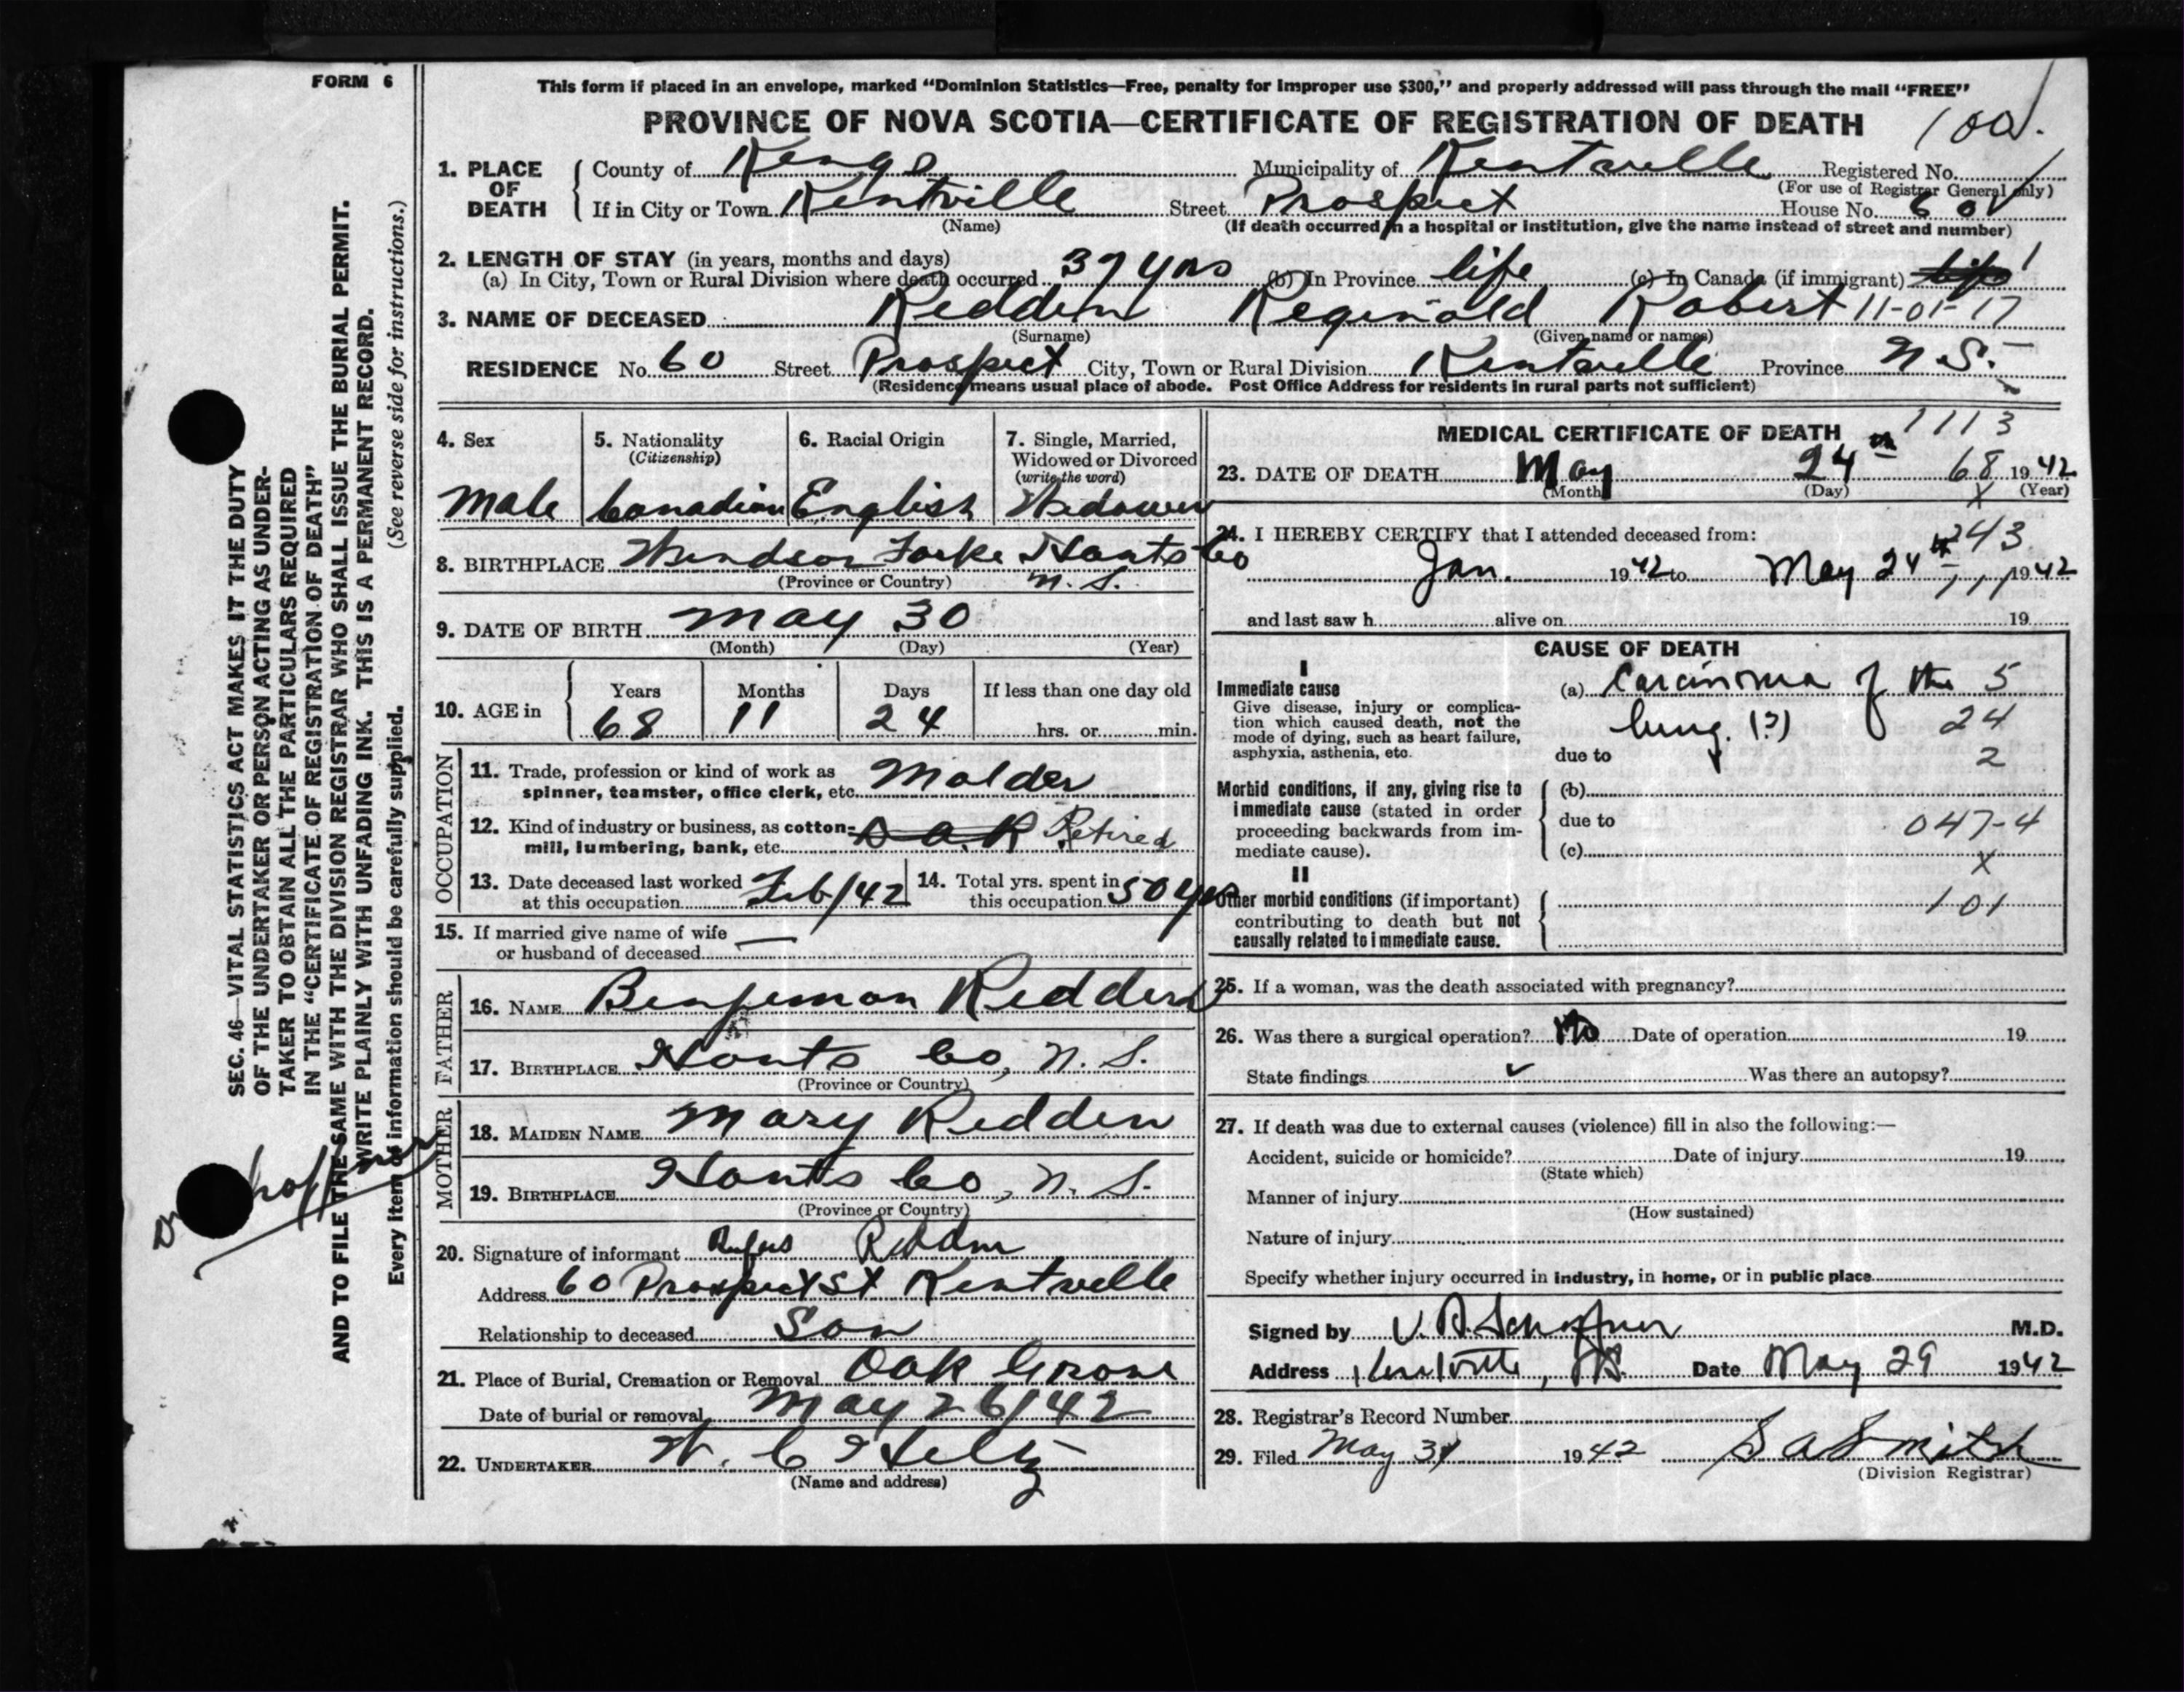 FORM 6
This form if placed in an envelope, marked "Dominion Statistics—Free, penalty for improper use $300," and properly addressed will pass through the mail "FREE"
PROVINCE OF NOVA SCOTIA—CERTIFICATE OF REGISTRATION OF DEATH
1. PLACE OF DEATH
County of Kings Municipality of Kentville Registered No.
(For use of Registrar General only)
If in City or Town Kentville Street Prospect House No. 60
(Name) (If death occurred in a hospital or institution, give the name instead of street and number)
2. LENGTH OF STAY (in years, months and days)
(a) In City, Town or Rural Division where death occurred 37 yrs (b) In Province life (c) In Canada (if immigrant) life
3. NAME OF DECEASED Redden Reginald Robert 11-01-17
(Surname) (Given name or names)
RESIDENCE No. 60 Street Prospect City, Town or Rural Division Kentville Province N.S.
(Residence means usual place of abode. Post Office Address for residents in rural parts not sufficient)
4. Sex Male
5. Nationality (Citizenship) Canadian
6. Racial Origin English
7. Single, Married, Widowed or Divorced (write the word) Widower
8. BIRTHPLACE Windsor Forks Hants Co N.S.
(Province or Country)
9. DATE OF BIRTH May 30
(Month) (Day) (Year)
10. AGE in Years 68 Months 11 Days 24 If less than one day old hrs. or min.
OCCUPATION
11. Trade, profession or kind of work as spinner, teamster, office clerk, etc. Molder
12. Kind of industry or business, as cotton-mill, lumbering, bank, etc. D.A.R Retired
13. Date deceased last worked at this occupation Feb/42
14. Total yrs. spent in this occupation 50 yrs
15. If married give name of wife or husband of deceased —
FATHER
16. NAME Benjeman Redden
17. BIRTHPLACE Hants Co, N.S.
(Province or Country)
MOTHER
18. MAIDEN NAME Mary Redden
19. BIRTHPLACE Hants Co, N.S.
(Province or Country)
20. Signature of informant Rufus Redden
Address 60 Prospect St Kentville
Relationship to deceased Son
21. Place of Burial, Cremation or Removal Oak Grove
Date of burial or removal May 26/42
22. UNDERTAKER W. C.
(Name and address)
MEDICAL CERTIFICATE OF DEATH
1113
23. DATE OF DEATH May 24th 68 1942
(Month) (Day) (Year)
24. I HEREBY CERTIFY that I attended deceased from: 243
Jan. 1942 to May 24th 111 1942
and last saw h alive on 19
CAUSE OF DEATH
I
Immediate cause
Give disease, injury or complication which caused death, not the mode of dying, such as heart failure, asphyxia, asthenia, etc.
(a) Carcinoma of the 5
lung. (?) 24
due to 2
Morbid conditions, if any, giving rise to immediate cause (stated in order proceeding backwards from immediate cause).
(b)
due to 047-4
(c) X
II
Other morbid conditions (if important) contributing to death but not causally related to immediate cause.
101
25. If a woman, was the death associated with pregnancy?
26. Was there a surgical operation? No Date of operation 19
State findings Was there an autopsy?
27. If death was due to external causes (violence) fill in also the following:—
Accident, suicide or homicide? Date of injury 19
(State which)
Manner of injury
(How sustained)
Nature of injury
Specify whether injury occurred in industry, in home, or in public place
Signed by V. D. Schaffner M.D.
Address Kentville, N.S. Date May 29 1942
28. Registrar's Record Number
29. Filed May 31 1942 S A Smith
(Division Registrar)
SEC. 46—VITAL STATISTICS ACT MAKES IT THE DUTY
OF THE UNDERTAKER OR PERSON ACTING AS UNDER-
TAKER TO OBTAIN ALL THE PARTICULARS REQUIRED
IN THE "CERTIFICATE OF REGISTRATION OF DEATH"
AND TO FILE THE SAME WITH THE DIVISION REGISTRAR WHO SHALL ISSUE THE BURIAL PERMIT.
WRITE PLAINLY WITH UNFADING INK. THIS IS A PERMANENT RECORD.
Every item of information should be carefully supplied. (See reverse side for instructions.)